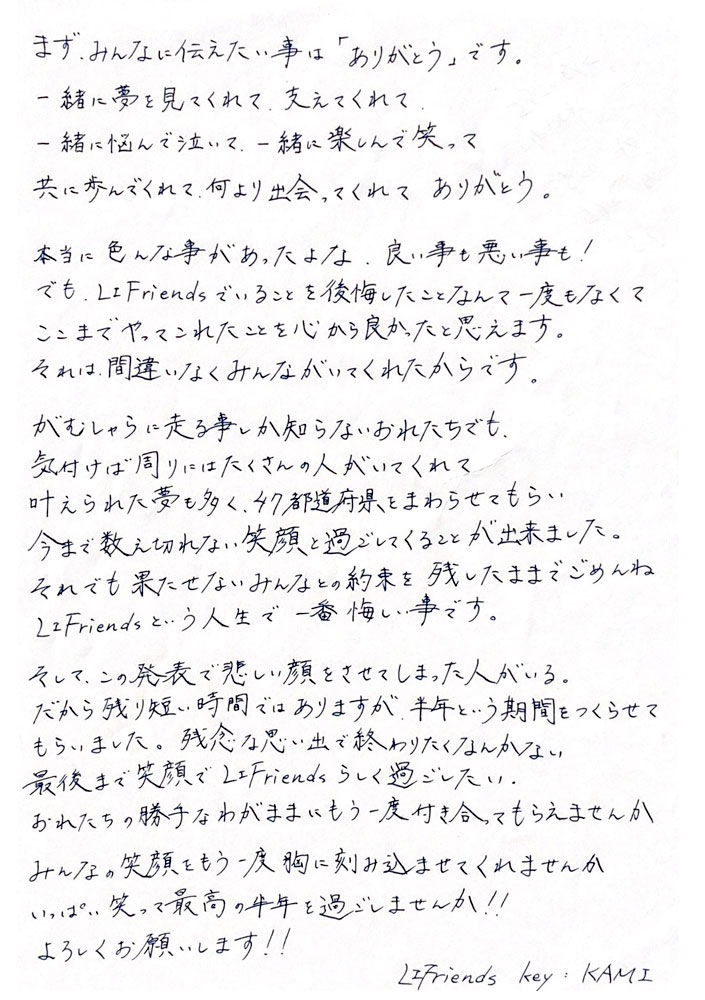 まず、みんなに伝えたい事は「ありがとう」です。
一緒に夢を見てくれて、支えてくれて、
一緒に悩んで泣いて、一緒に楽しんで笑って
共に歩んでくれて、何より出会ってくれて ありがとう。
本当に色んな事があったよな、良い事も悪い事も!
でも、LIFriendsでいることを後悔したことなんて一度もなくて
ここまでやってこれたことを心から良かったと思えます。
それは、間違いなくみんながいてくれたからです。
がむしゃらに走る事しか知らないおれたちでも、
気付けば周りにはたくさんの人がいてくれて
叶えられた夢も多く、47都道府県をまわらせてもらい
今まで数え切れない笑顔と過ごしてくることが出来ました。
それでも果たせないみんなとの約束を残したままでごめんね
LIFriendsという人生で一番悔しい事です。
そして、この発表で悲しい顔をさせてしまった人がいる。
だから残り短い時間ではありますが、半年という期間をつくらせて
もらいました。残念な思い出で終わりたくなんかない
最後まで笑顔でLIFriendsらしく過ごしたい、
おれたちの勝手なわがままにもう一度付き合ってもらえませんか
みんなの笑顔をもう一度胸に刻み込ませてくれませんか
いっぱい笑って最高の半年を過ごしませんか!!
よろしくお願いします!!
LIFriends key: KAMI